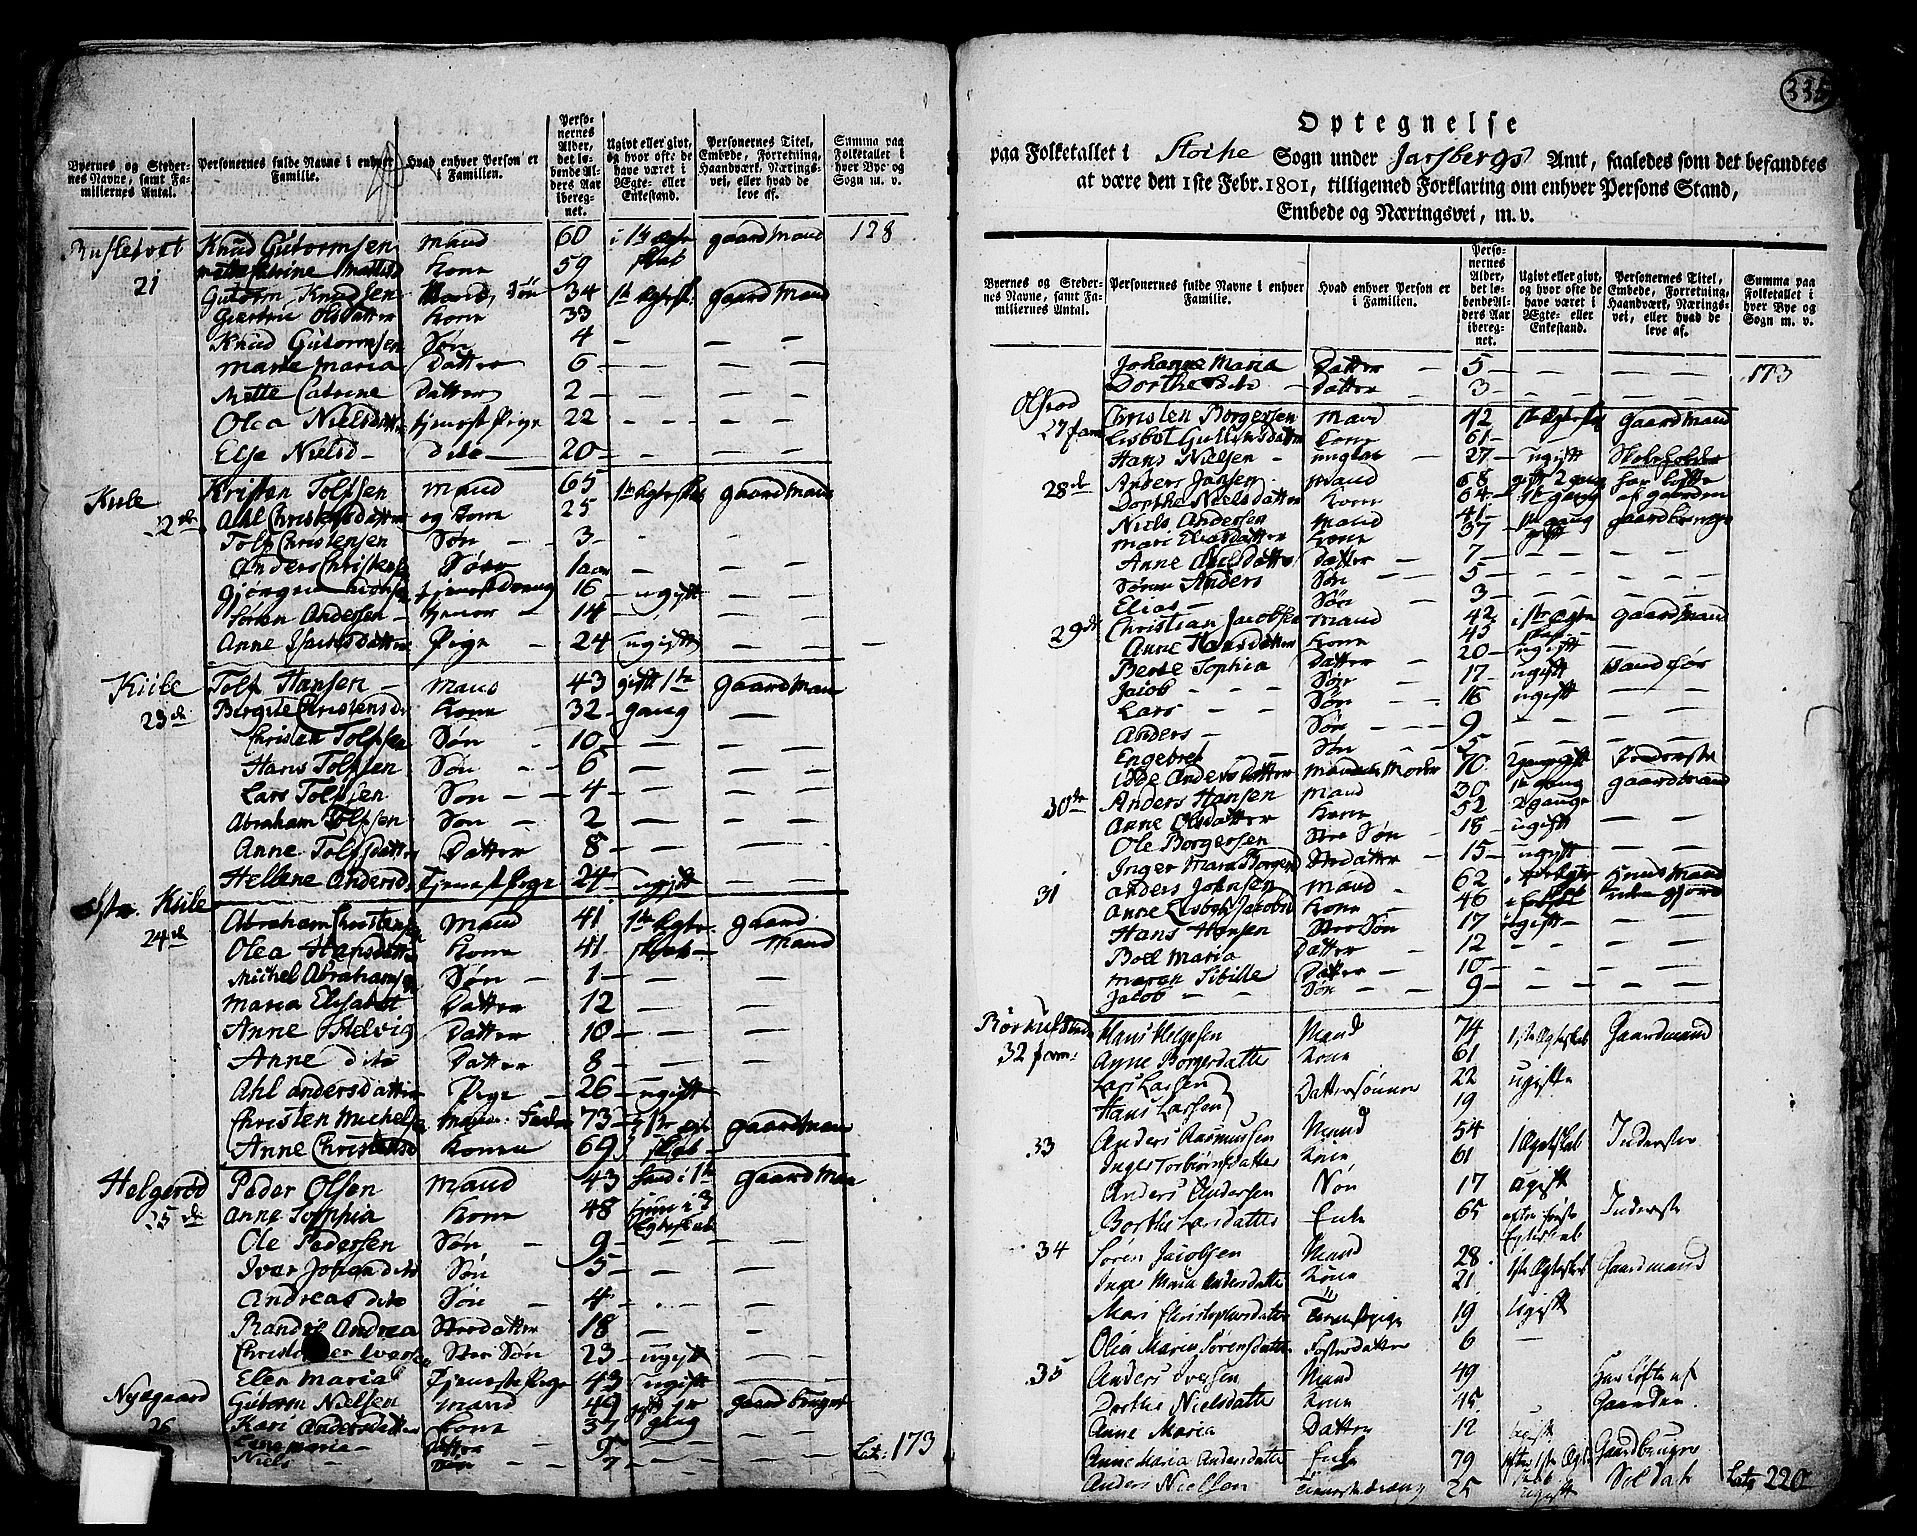 335
Byernes og Stedernes Navne, samt Familiernes Antal.
Personernes fulde Navne i enhver Familie.
Hvad enhver Person er i Familien.
Personernes Alder, det løbende Alders Aar iberegnet.
Ugivt eller givt, og hvor ofte de have været i Ægte- eller Enkestand.
Personernes Titel, Embede, Forretning, Haandværk, Næringsvei, eller hvad de leve af.
Summa paa Folketallet i hver Bye og Sogn m. v.
Knud Gutormsen Mand 60 i 1te Ægte gaard Mand 128
21 Mette Catrine Kone 59 skab
Gutorm Knudsen Søn 34 gaard Mand
Olsdatter Kone 33
Knud Gutormsen Søn 4 — —
Marte Maria Datter 6 — —
Mette Catrine Datter 2 — —
Olea Nielsdatter tjenest Pige 22 — —
Else Nielsd. dito 20 — —
Kiile Kristen Tolfsen Mand 65 gaard Mand
22 de Ahl Christensdatter og Kone 25
Tolf Christensen Søn 3 — —
Anders Christensen Søn 1 aar — —
Gjørgen tjenestdreng 16 ugift —
Søren Andersen 14 — —
Anne Pige 24 ugift —
Kiile Tolf Hansen Mand 43 gift 1te gaard Man
23 de Birgite Christensd. Kone 32 gang —
Christen Tolfsen Søn 10 — —
Hans Tolfsen Søn 6 — —
Lars Tolfsen Søn 4 — —
Abraham Tolfsen Søn 2 — —
Anne Tolfsdatter Datter 8 — —
Hellene Andersd. Tjenest Pige 24 ugift —
Kiile Abraham Christensen Mand 41 1te Ægte gaard
24 de Olea Hansdatter Kone 41 skab Mand
Michel Abrahamsen Søn 1 — —
Maria Elisabet Datter 12 — —
Anne Helvig Datter 10 — —
Anne dito Datter 8 — —
Ahl Andersdatter Pige 26 ugift —
Christen Michelsen Mands Fader 73 gaard Man
Anne Christensd Konen 69 skab
Helgerød Peder Olsen Mand 43 gaard Man
25 de Anne Sophia Kone 48 Egteskab
Ole Pedersen Søn 9 — —
Ivar Johan dito Søn 5 — —
Andreas dito Søn 4 — —
Randi Andrea Stevdatter 18 — —
Iversen Stev Søn 23 ugift —
Elen Maria Tjeneste Pige 43 ugift —
Nyegaard Gutorm Nielsen Mand 49 gaardbruger
26 Kari Andersdatter Kone 37 gang
Maria Datter 9
Niels Søn 7
Lat. 173
Optegnelse
paa Folketallet i Stokke Sogn under Jarlsbergs Amt, saaledes som det befandtes
at være den 1ste Febr. 1801, tilligemed Forklaring om enhver Persons Stand,
Embede og Næringsvei, m. v.
Byernes og Stedernes Navne, samt Familiernes Antal.
Personernes fulde Navne i enhver Familie.
Hvad enhver Person er i Familien.
Personernes Alder, det løbende Alders Aar iberegnet.
Ugivt eller givt, og hvor ofte de have været i Ægte- eller Enkestand.
Personernes Titel, Embede, Forretning, Haandværk, Næringsvei, eller hvad de leve af.
Summa paa Folketallet i hver Bye og Sogn m. v.
Johanne Maria Datter 5 — — 173
Dorthe dito Datter 3 — —
Olsrød Christen Borgersen Mand 42 gaard Mand
27 fam Lisbet Kone 61
Hans Nielsen 27 ugift Skoleholder
28 de Anders Jansen Mand 68 gift 2 gang har løfte
Dorthe Nielsdatter Kone 64 1te gang af gaarden
Niels Andersen Mand 41 1te gang gaardbruger
Mari Eliasdatter Kone 37 gift
Anne Datter 7 — —
Anders Søn 5 — —
Elias Søn 3 — —
29 de Christian Jacobsen Mand 42 i 1te Ægte gaard Mand
Anne Hansdatter Kone 43 skab
Berte Sophia Datter 20 ugift
Jacob Søn 17 ugift
Lars Søn 16 ugift —
Anders Søn 9 — —
Engebret Søn 5 — —
Andersdatter Mandens Moder 70 2 gang gift Inderste
30 te Anders Hansen Mand 30 1te gang gaard Mand
Anne Olsdatter Kone 52 2 gange
Ole Borgersen Stev Søn 18 ugift —
Inger Maria Borgersd Stevdatter 15 ugift —
31 Anders Johnsen Mand 62 Huus Mand
Anne Lisbet Jacobsd Kone 46 uden Gjord
Hans Hansen Stev Søn 17 ugift —
Boel Maria Datter 12 — —
Maren Sibille Datter 10 — —
Jacob Søn 9 — —
Hans Helgesen Mand 74 1ste Ægteskab Gaardmand
32 fam. Anne Borgersdatter Kone 61
Lars Larsen 22 ugifte
Hans Larsen Dattersønner 19
33 Anders Rasmussen Mand 54 1 Ægteskab Inderste
Inger Torbiørnsdatter Kone 61
Anders Andersen Søn 17 ugift
Berthe Larsdatter Enke 65 efter første Egteskab Inderste
34 Søren Jacobsen Mand 28 1ste Ægteskab Gaardmand
Inger Maria Andersdatter Kone 21
Mari Christophersdatter Tienestepige 19 Ugift
Olea Maria Sørensdatter Fosterdatter 6 —
35 Anders Iversen Mand 49 Har løfte af
Dorthe Nielsdatter Kone 45 Gaarden
Anne Maria Datter 12 ugift
Anne Maria Andersdatter Enke 79 efter 1ste Ægteskab Gaardbruger
Anders Nielsen Tienestedreng 25 ugift Soldat
Lat. 220